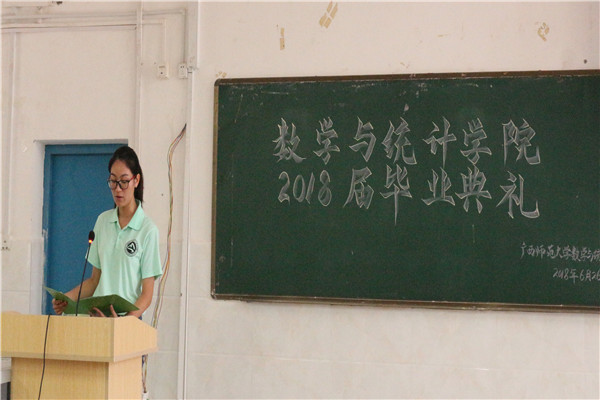 数学与统计学院
2018届毕业典礼
广西师范大学数学与
2018年6月26